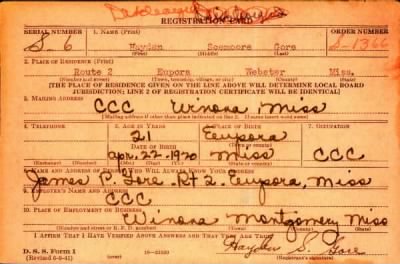 REGISTRATION CARD
SERIAL NUMBER 1. NAME (Print) ORDER NUMBER
S-6 Hayden Seemoore Gore S-1366
2. PLACE OF RESIDENCE (Print)
Route 2 Eupora Webster Miss.
(Number and street) (Town, township, village, or city) (County) (State)
[THE PLACE OF RESIDENCE GIVEN ON THE LINE ABOVE WILL DETERMINE LOCAL BOARD
JURISDICTION; LINE 2 OF REGISTRATION CERTIFICATE WILL BE IDENTICAL]
3. MAILING ADDRESS
CCC Winona Miss
[Mailing address if other than place indicated on line 2. If same insert word same]
4. TELEPHONE 5. AGE IN YEARS 6. PLACE OF BIRTH 7. OCCUPATION
21 Eupora
DATE OF BIRTH
Apr. 22-1920 Miss CCC
(Exchange) (Number) (Mo.) (Day) (Yr.) (State or country)
8. NAME AND ADDRESS OF PERSON WHO WILL ALWAYS KNOW YOUR ADDRESS
James P. Gore. Rt 2. Eupora, Miss
9. EMPLOYER'S NAME AND ADDRESS
CCC
10. PLACE OF EMPLOYMENT OR BUSINESS
Winona Montgomery Miss
(Number and street or R. F. D. number) (Town) (County) (State)
I AFFIRM THAT I HAVE VERIFIED ABOVE ANSWERS AND THAT THEY ARE TRUE.
D. S. S. Form 1 Hayden S. Gore
(Revised 6-9-41) (Registrant's signature)